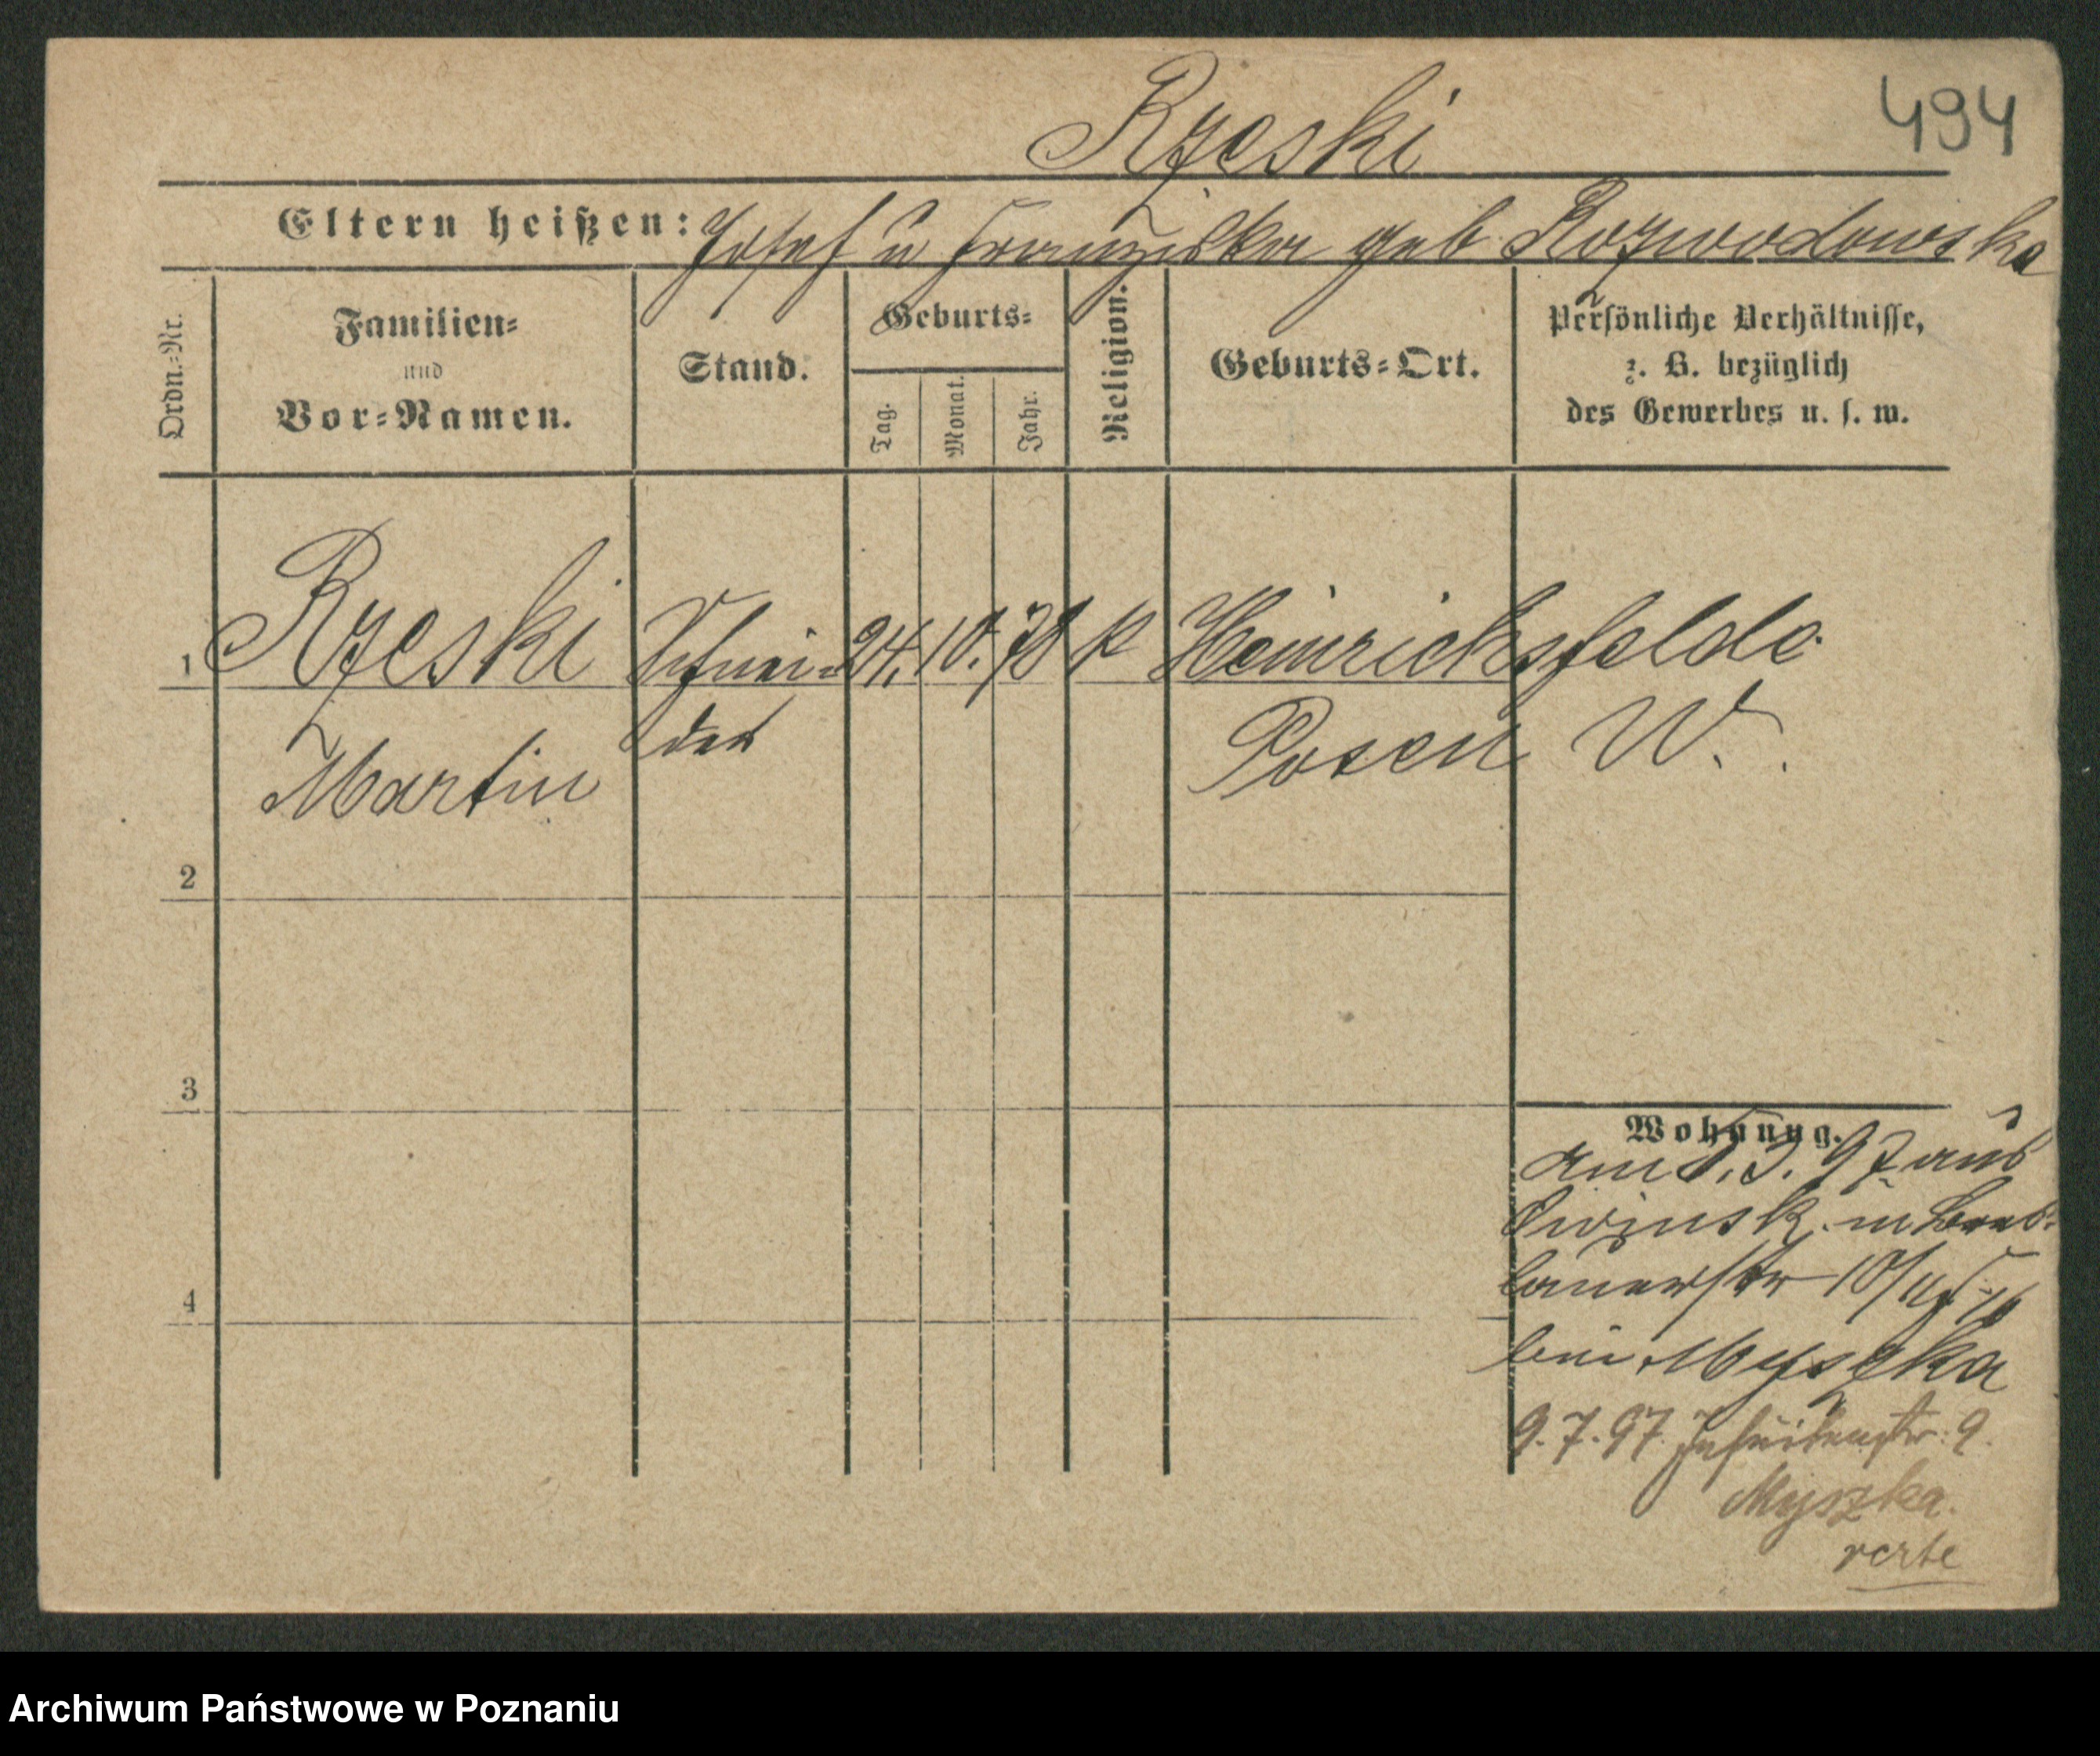 Rzeski
494
Eltern heißen: Josef u Franziska geb Rozwodowska
Ordn.=Nr.
Familien=
und
Vor=Namen.
Stand.
Geburts=
Tag.
Monat.
Jahr.
Religion.
Geburts=Ort.
Persönliche Verhältnisse,
z. B. bezüglich
des Gewerbes u. s. w.
1 Rzeski Schnei= 24. 10. 78 k Heinrichsfelde
der Posen W.
Martin
2
3
4
Wohnung.
am 97 aus
10/11
bei Myszka
9.7.97 Jesuitenstr. 9.
Myszka.
verte
Archiwum Państwowe w Poznaniu